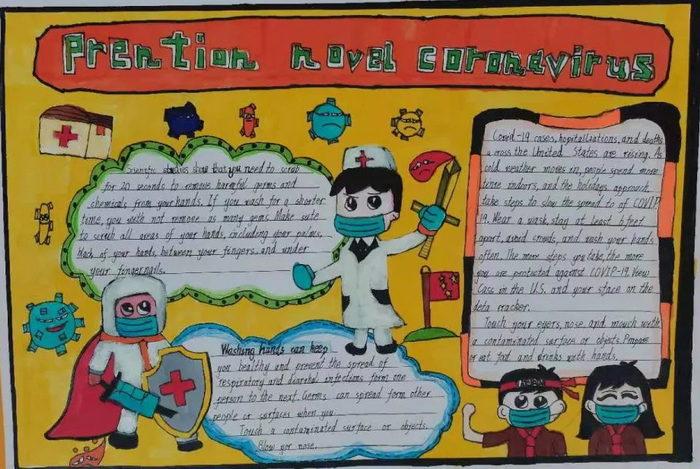 Prention novel coronavirus
Scientific studies show that you need to scrub
for 20 seconds to remove harmful germs and
chemicals from your hands. If you wash for a shorter
time, you with not remove as many gems. Make sute
to scrub all areas of your hands, including your palms,
black of your hands, between your fingers, and under
your fingernails.
Covid-19 cases, hospitalizations, and deaths
a cross the United States are rising. As
cold weather moves in, people spend more
time indoors, and the holidays approach,
take steps to slow the spread to of COVIP
19. Wear a mask, stay at least 6 feet
apart, avoid crowds, and wash your hands
often. The more steps you take, the more
you are protected against COVIP-19. View
Case in the U.S. and your stace on the
data tracker.
Touch your eyers, nose, and mouth with
a contaminated surface or objects. Prepare
or eat food and drinks with hands.
Washing hands can keep
you healthy and prevent the spread of
respiratory and diarrheal infections form one
person to the next. Germs can spread form other
people or surfaces when you
Touch a contaminated surface or objects.
Blow yor nose.